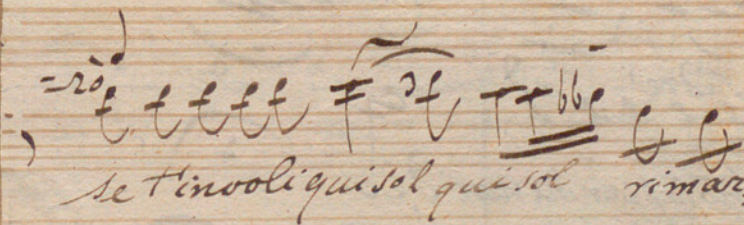 -rò
se t'involi qui sol qui sol rimar